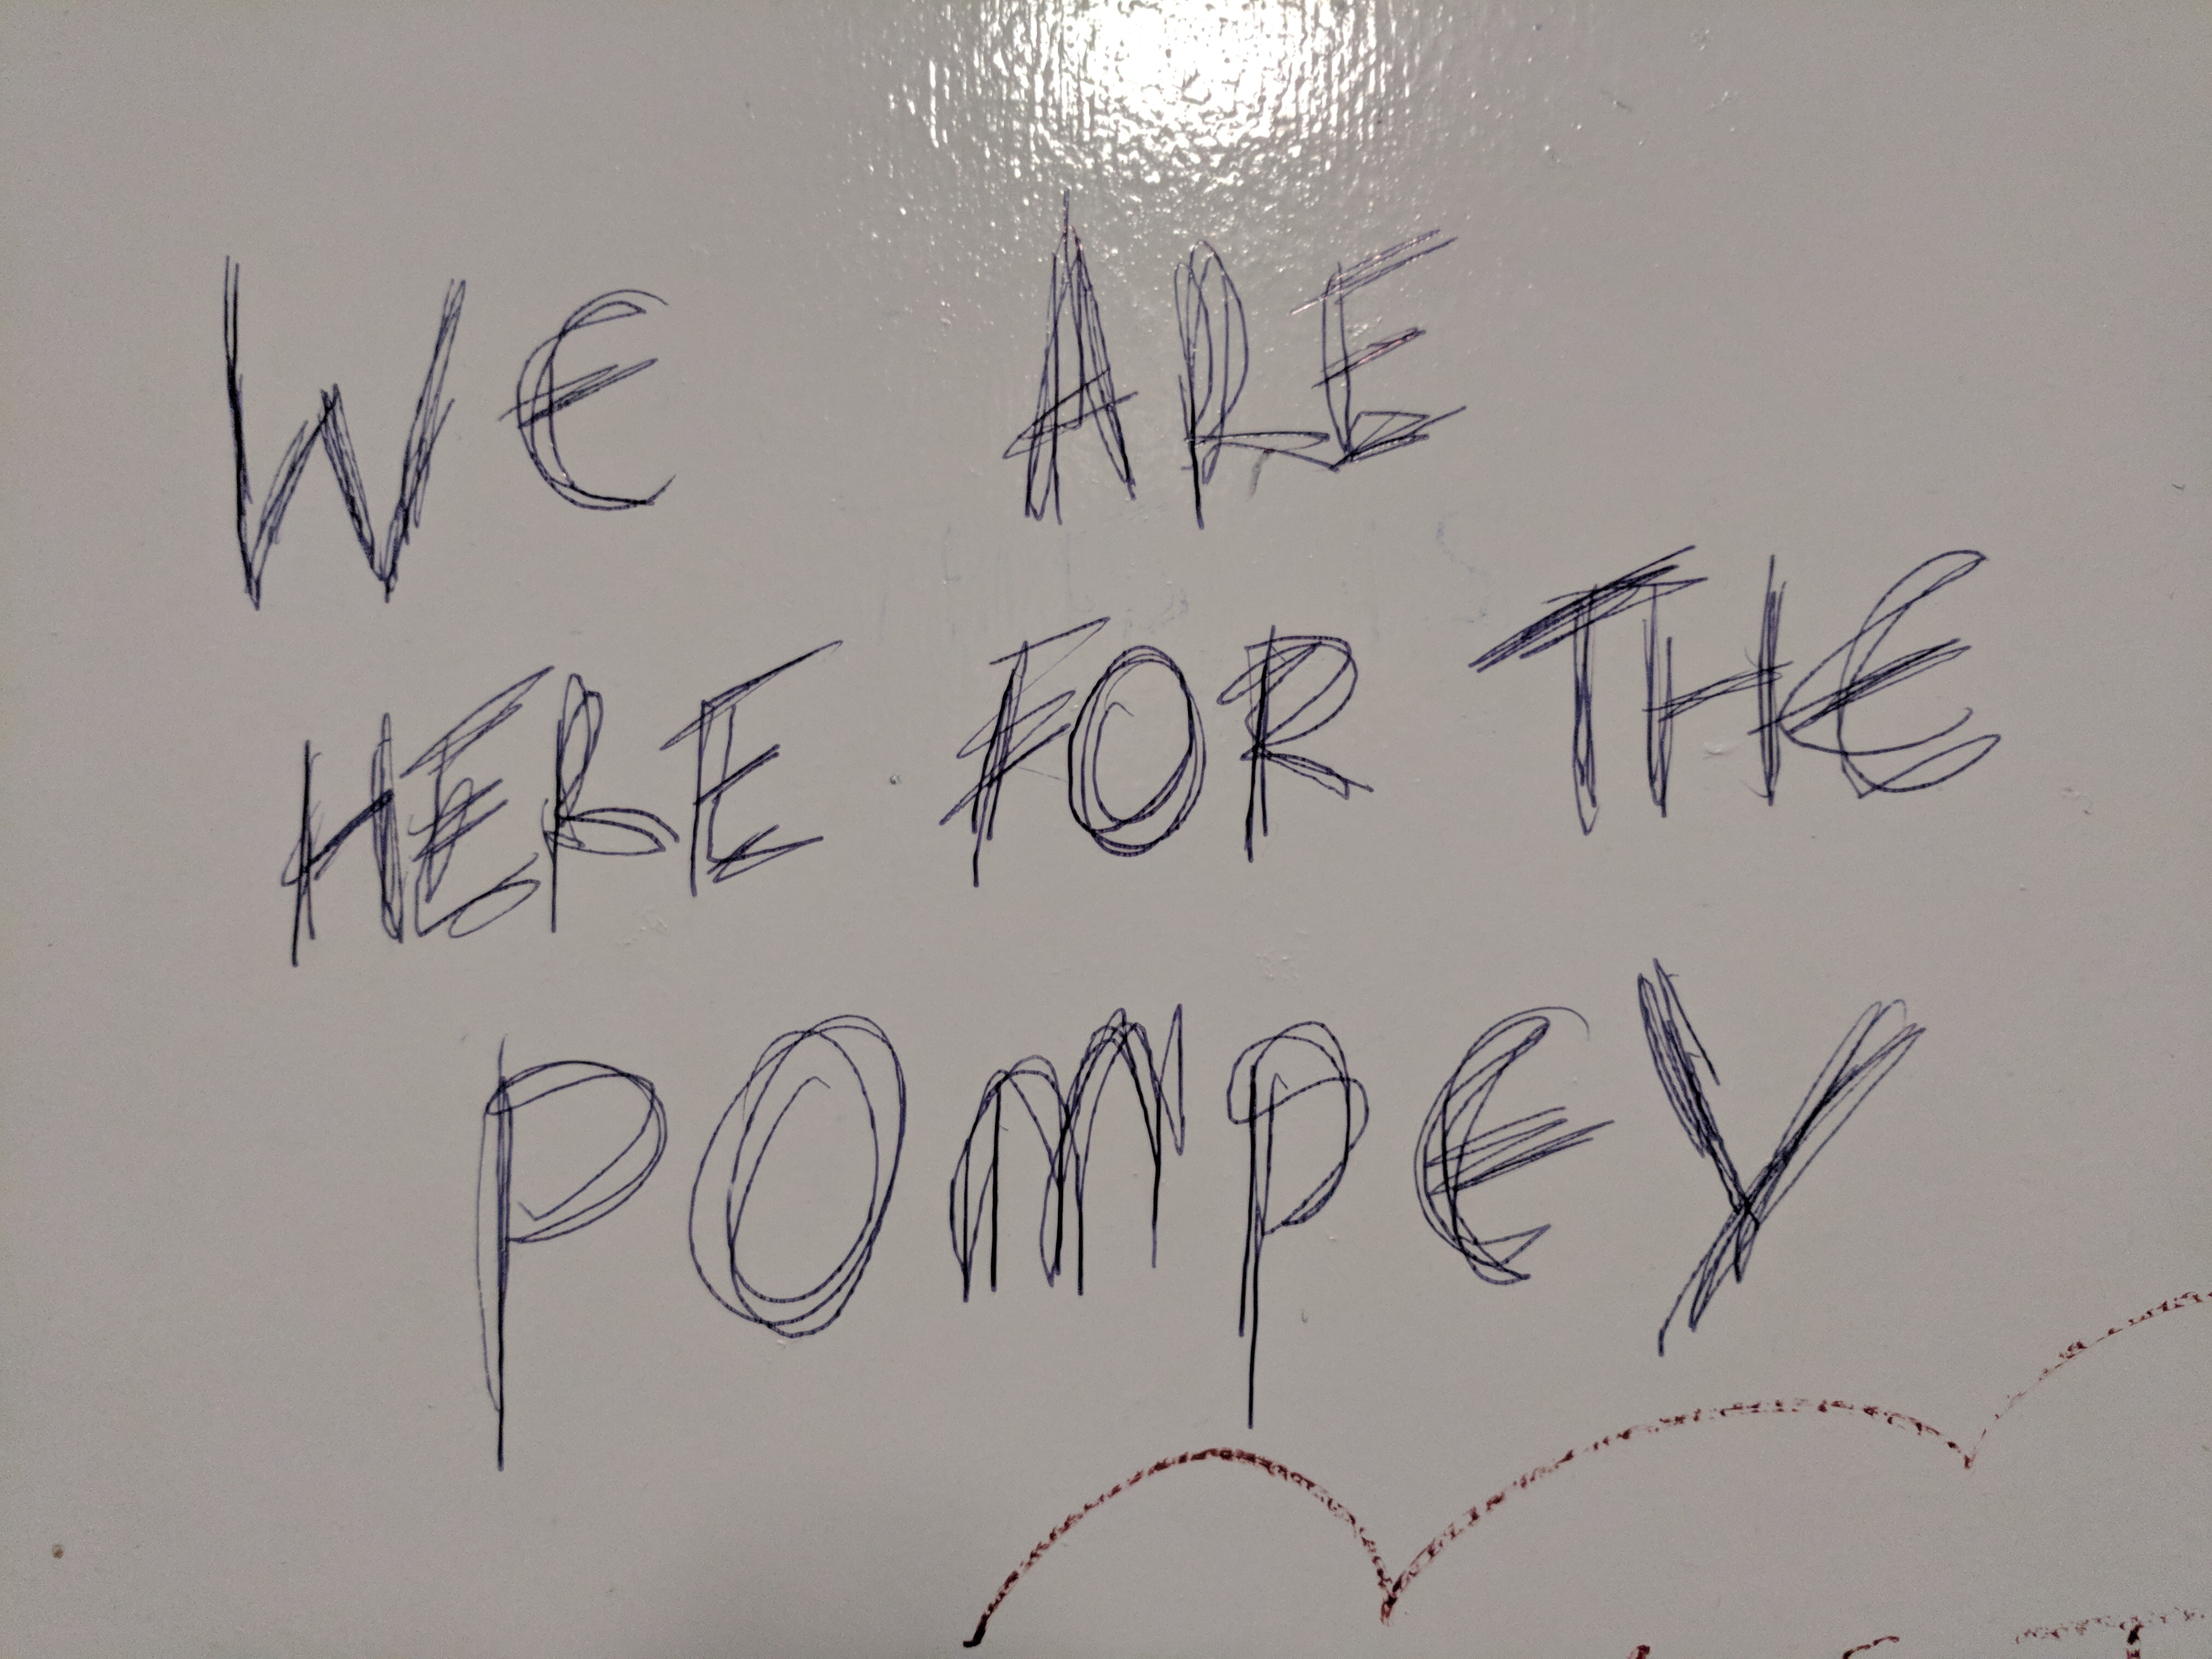 WE ARE
HERE FOR THE
POMPEY